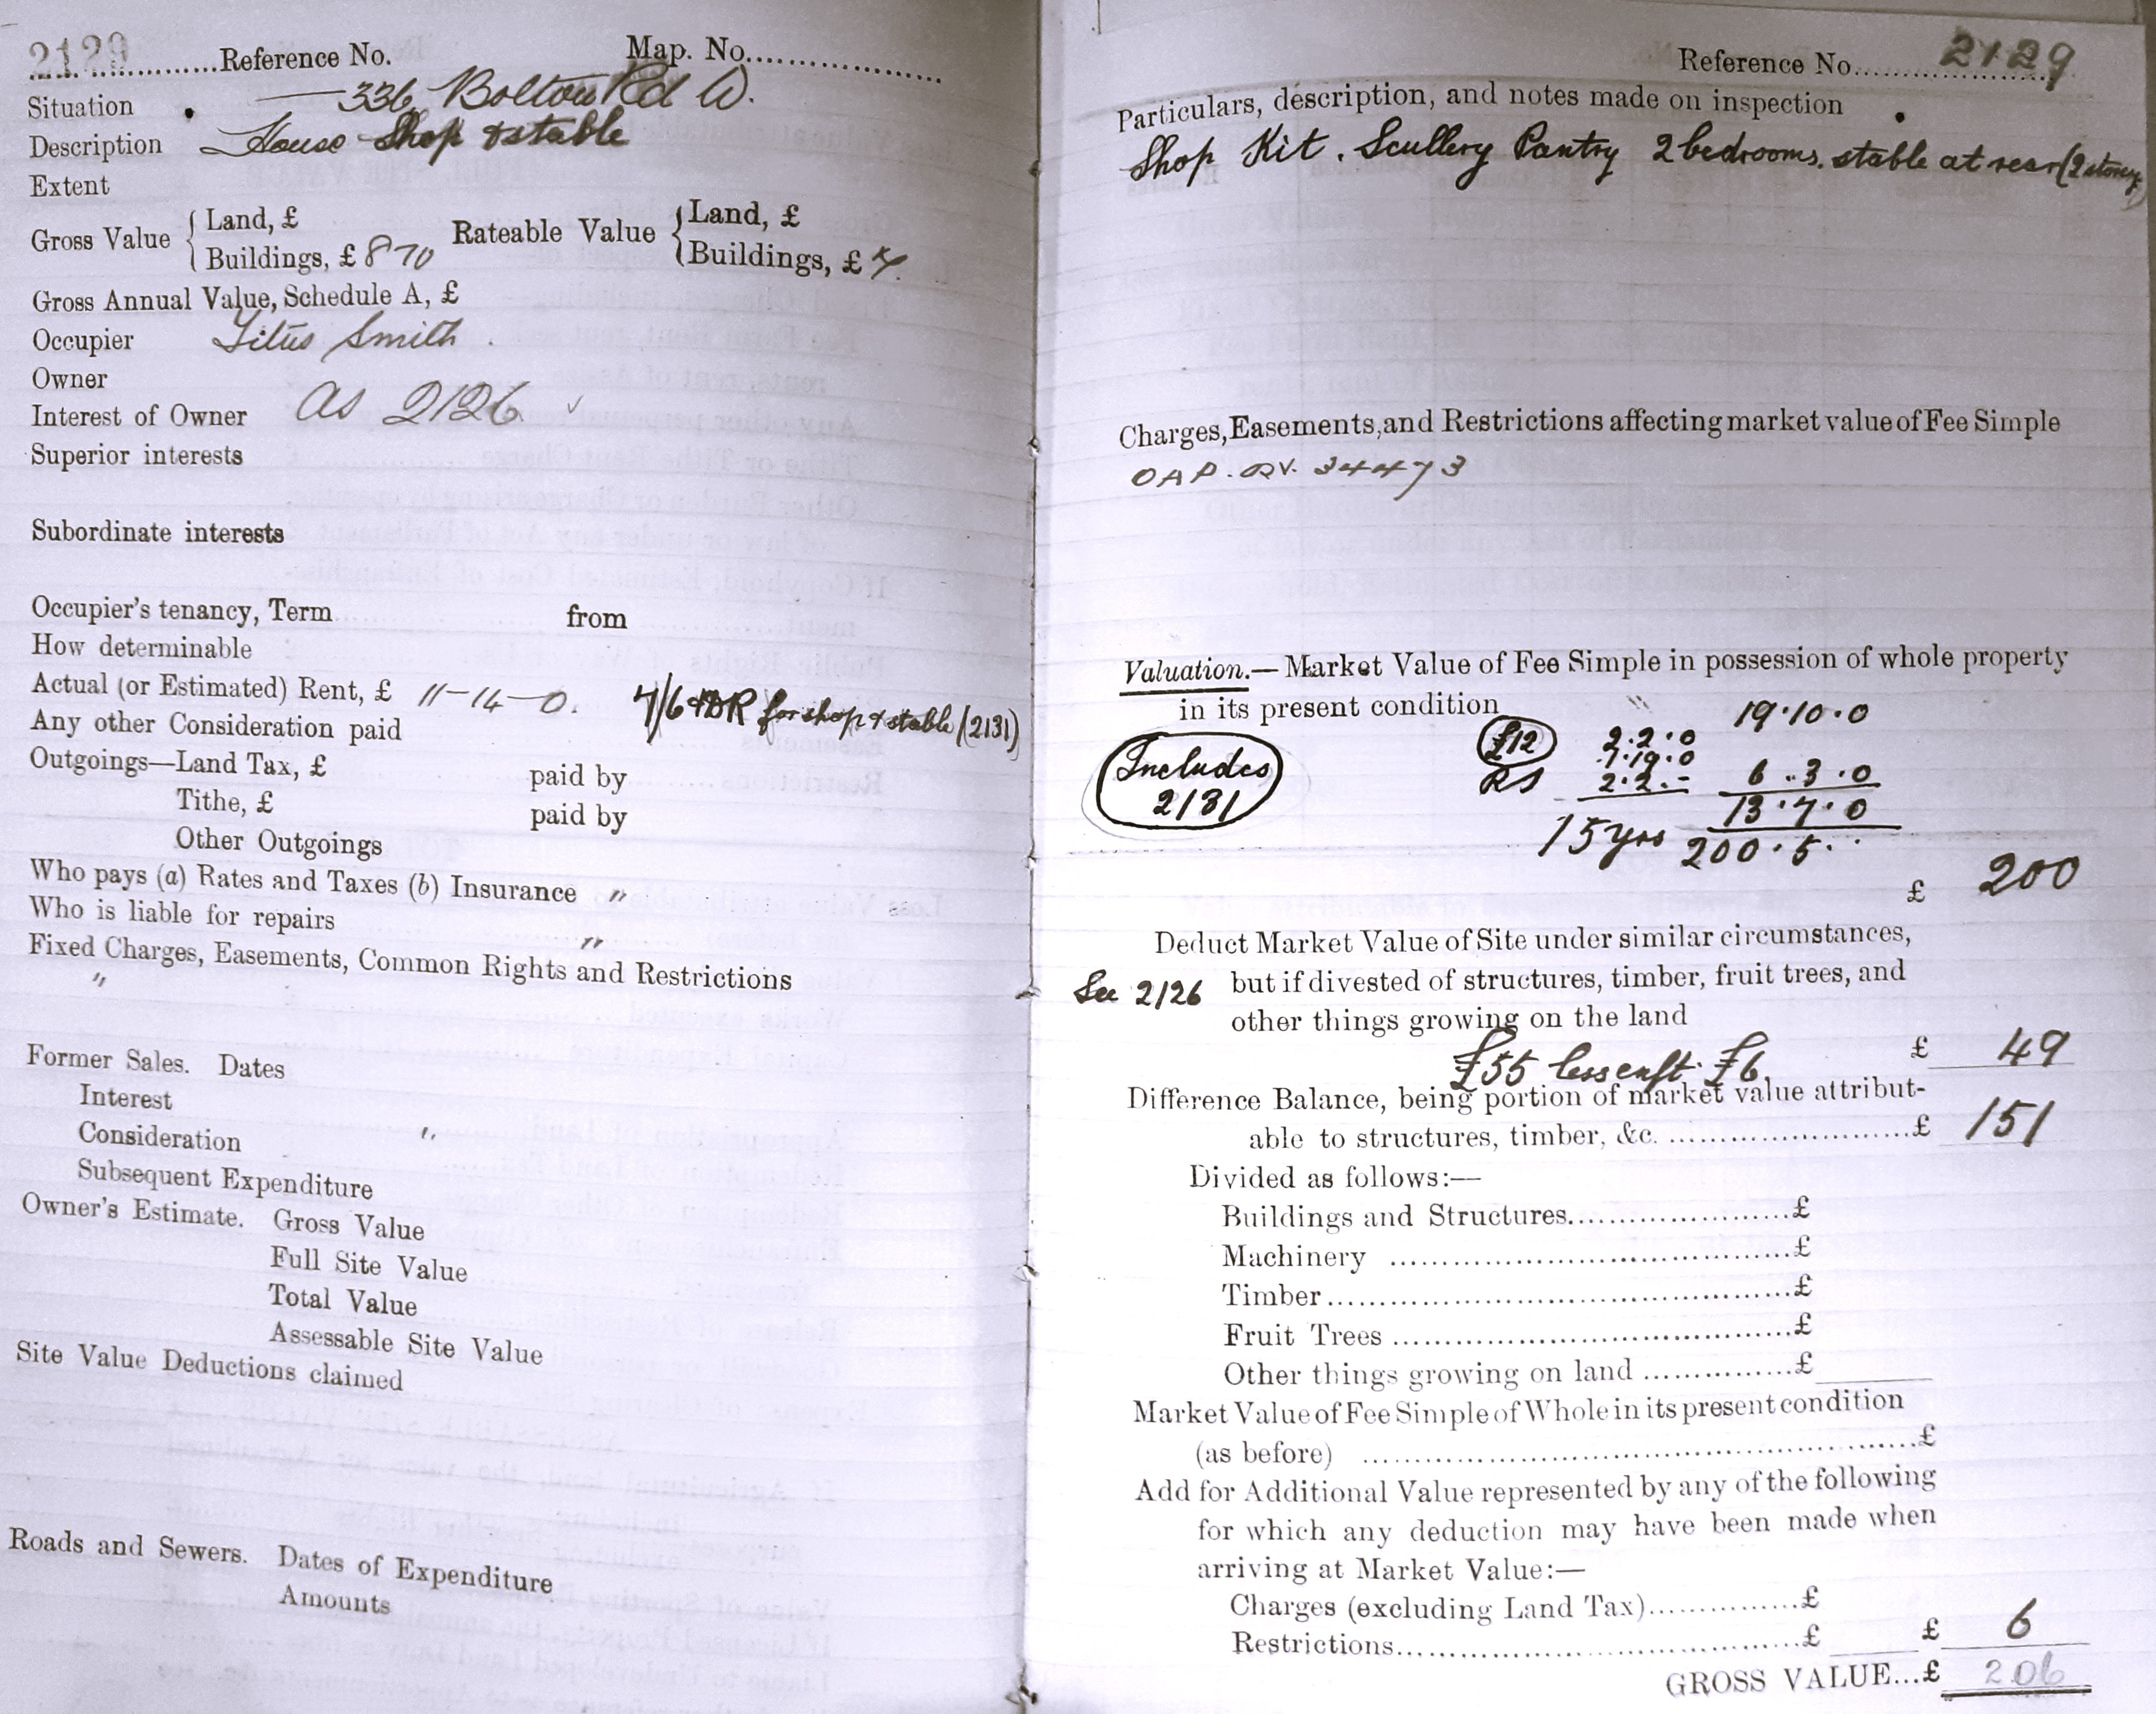 2129 Reference No. Map. No.
Situation 336 Bolton Rd W.
Description House Shop & stable
Extent
Gross Value { Land, £ Rateable Value { Land, £
Buildings, £ 8 70 Buildings, £ 7
Gross Annual Value, Schedule A, £
Occupier Titus Smith
Owner
Interest of Owner As 2126 ✓
Superior interests
Subordinate interests
Occupier's tenancy, Term from
How determinable
Actual (or Estimated) Rent, £ 11-14-0. 7/6 & DR for shop & stable (2131)
Any other Consideration paid
Outgoings—Land Tax, £ paid by
Tithe, £ paid by
Other Outgoings
Who pays (a) Rates and Taxes (b) Insurance "
Who is liable for repairs "
Fixed Charges, Easements, Common Rights and Restrictions
"
Former Sales. Dates
Interest
Consideration "
Subsequent Expenditure
Owner's Estimate. Gross Value
Full Site Value
Total Value
Assessable Site Value
Site Value Deductions claimed
Roads and Sewers. Dates of Expenditure
Amounts
Reference No. 2129
Particulars, description, and notes made on inspection
Shop Kit. Scullery Pantry 2 bedrooms. stable at rear (2 storey)
Charges, Easements, and Restrictions affecting market value of Fee Simple
OAP. 34473
Valuation.— Market Value of Fee Simple in possession of whole property
in its present condition
19.10.0
£12 2.2.0
1.19.0
Includes 2131
RS 2.2.- 6.3.0
13.7.0
15 yrs 200.5..
£ 200
Deduct Market Value of Site under similar circumstances,
See 2126 but if divested of structures, timber, fruit trees, and
other things growing on the land
£55 less £6 £ 49
Difference Balance, being portion of market value attribut-
able to structures, timber, &c. £ 151
Divided as follows:—
Buildings and Structures £
Machinery £
Timber £
Fruit Trees £
Other things growing on land £
Market Value of Fee Simple of Whole in its present condition
(as before) £
Add for Additional Value represented by any of the following
for which any deduction may have been made when
arriving at Market Value:—
Charges (excluding Land Tax) £
Restrictions £ £ 6
GROSS VALUE...£ 206